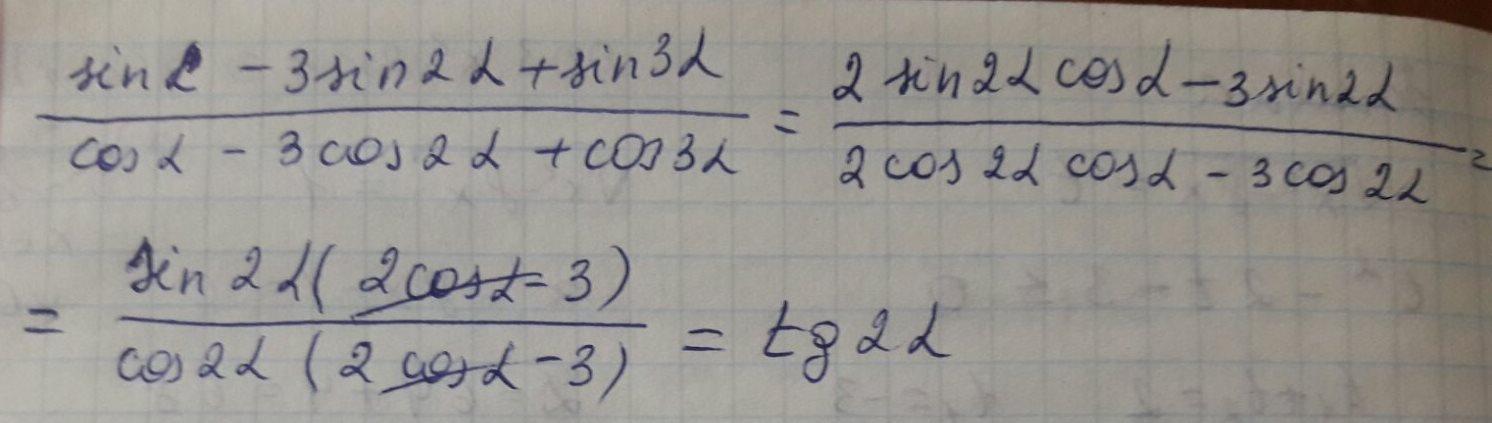 (sin α - 3 sin 2α + sin 3α) / (cos α - 3 cos 2α + cos 3α) = (2 sin 2α cos α - 3 sin 2α) / (2 cos 2α cos α - 3 cos 2α) =
= (sin 2α (2 cos α - 3)) / (cos 2α (2 cos α - 3)) = tg 2α